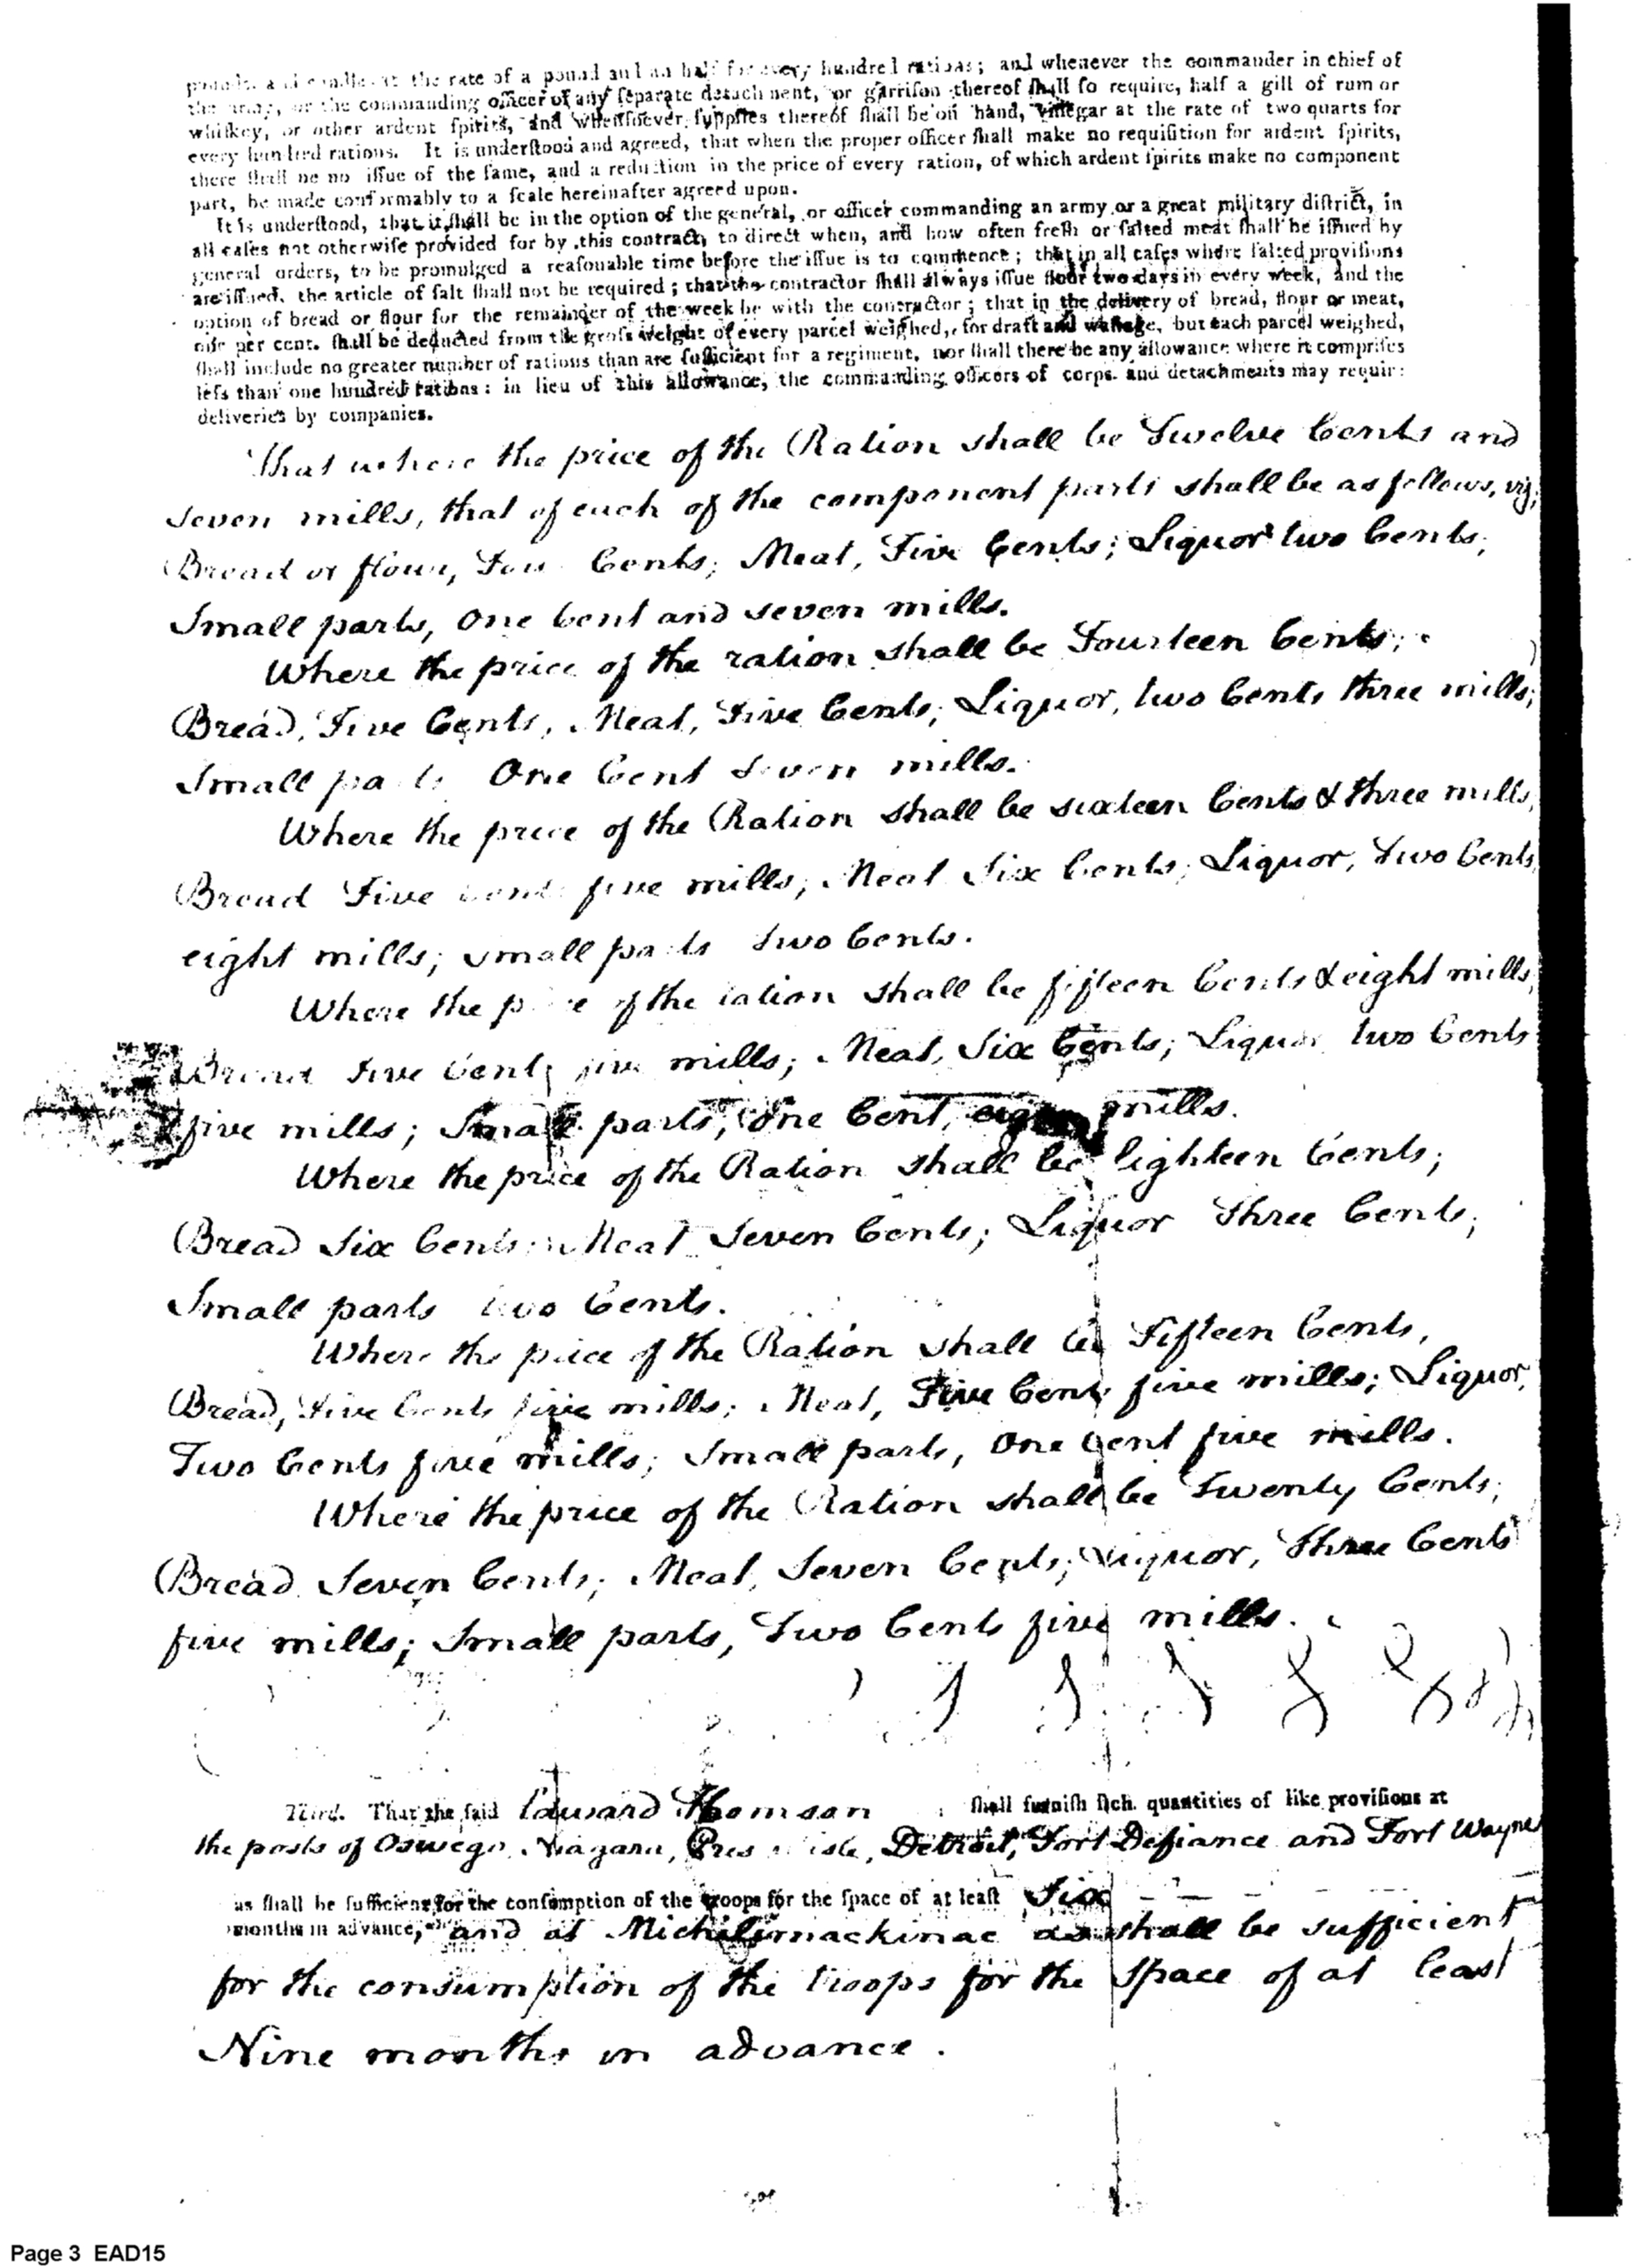 the rate of a pound and an half for every hundred rations; and whenever the commander in chief of
the army, or the commanding officer of any ſeparate detachment, or garriſon thereof ſhall ſo require, half a gill of rum or
whiſkey, or other ardent ſpirits, and whenſoever ſupplies thereof ſhall be on hand, vinegar at the rate of two quarts for
every hundred rations. It is underſtood and agreed, that when the proper officer ſhall make no requiſition for ardent ſpirits,
there ſhall be no iſſue of the ſame, and a reduction in the price of every ration, of which ardent ſpirits make no component
part, be made conformably to a ſcale hereinafter agreed upon.
It is underſtood, that it ſhall be in the option of the general, or officer commanding an army or a great military diſtrict, in
all caſes not otherwiſe provided for by this contract, to direct when, and how often freſh or ſalted meat ſhall be iſſued by
general orders, to be promulged a reaſonable time before the iſſue is to commence; that in all caſes where ſalted proviſions
are iſſued, the article of ſalt ſhall not be required; that the contractor ſhall always iſſue flour two days in every week, and the
option of bread or flour for the remainder of the week be with the contractor; that in the delivery of bread, flour or meat,
per cent. ſhall be deducted from the groſs weight of every parcel weighed, for draft and waſtage, but each parcel weighed,
ſhall include no greater number of rations than are ſufficient for a regiment, nor ſhall there be any allowance where it compriſes
leſs than one hundred rations: in lieu of this allowance, the commanding officers of corps and detachments may require
deliveries by companies.
That where the price of the Ration shall be Twelve Cents and
Seven mills, that of each of the component parts shall be as follows, viz;
Bread or flour, Four Cents; Meat, Five Cents; Liquor two Cents;
Small parts, One Cent and seven mills.
Where the price of the ration shall be Fourteen Cents;
Bread, Five Cents, Meat, Five Cents; Liquor, two Cents three mills;
Small parts One Cent Seven mills.
Where the price of the Ration shall be sixteen Cents & three mills,
Bread Five Cents five mills; Meat Six Cents; Liquor, Two Cents
eight mills; small parts Two Cents.
Where the price of the ration shall be fifteen Cents & eight mills,
Bread Five Cents five mills; Meat, Six Cents; Liquor two Cents
five mills; Small parts, One Cent, eight mills.
Where the price of the Ration shall be Eighteen Cents;
Bread Six Cents; Meat Seven Cents; Liquor Three Cents;
Small parts two Cents.
Where the price of the Ration shall be Fifteen Cents,
Bread, Five Cents five mills; Meat, Five Cents five mills; Liquor,
Two Cents five mills; Small parts, One Cent five mills.
Where the price of the Ration shall be Twenty Cents;
Bread Seven Cents; Meat, Seven Cents; Liquor, Three Cents
five mills; Small parts, Two Cents five mills.
Third. That the ſaid Edward Thomson ſhall furniſh ſuch quantities of like proviſions at
the posts of Oswego, Niagara, Presqu isle, Detroit, Fort Defiance and Fort Wayne
as ſhall be ſufficient for the conſumption of the troops for the ſpace of at leaſt Six
months in advance, and at Michilimackinac as shall be sufficient
for the consumption of the troops for the space of at least
Nine months in advance.
Page 3 EAD15